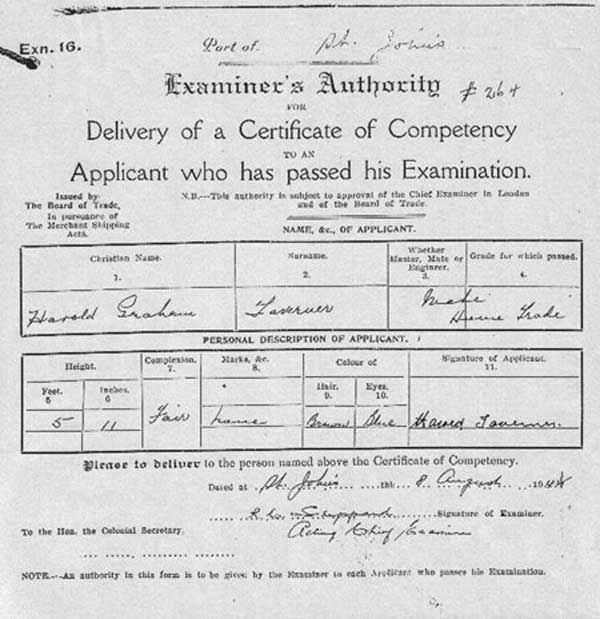 Exn. 16.
Port of. St. John's
Examiner's Authority # 264
FOR
Delivery of a Certificate of Competency
TO AN
Applicant who has passed his Examination.
Issued by
The Board of Trade,
In pursuance of
The Merchant Shipping
Acts.
N.B.---This authority is subject to approval of the Chief Examiner in London
and of the Board of Trade.
NAME, &c., OF APPLICANT.
Christian Name.
1.
Surname.
2.
Whether
Master, Mate or
Engineer.
3.
Grade for which passed.
4.
Harold Graham
Taverner
Mate
Home Trade
PERSONAL DESCRIPTION OF APPLICANT.
Height.
Feet.
5
Inches.
6
Complexion.
7.
Marks, &c.
8.
Colour of
Hair.
9.
Eyes.
10.
Signature of Applicant.
11.
5
11
Fair
none
Brown
Blue
Harold Taverner
Please to deliver to the person named above the Certificate of Competency.
Dated at St. John's the 8 August 194
Sheppard Signature of Examiner.
Acting Chief Examiner
To the Hon. the Colonial Secretary.
NOTE.---An authority in this form is to be given by the Examiner to each Applicant who passes his Examination.